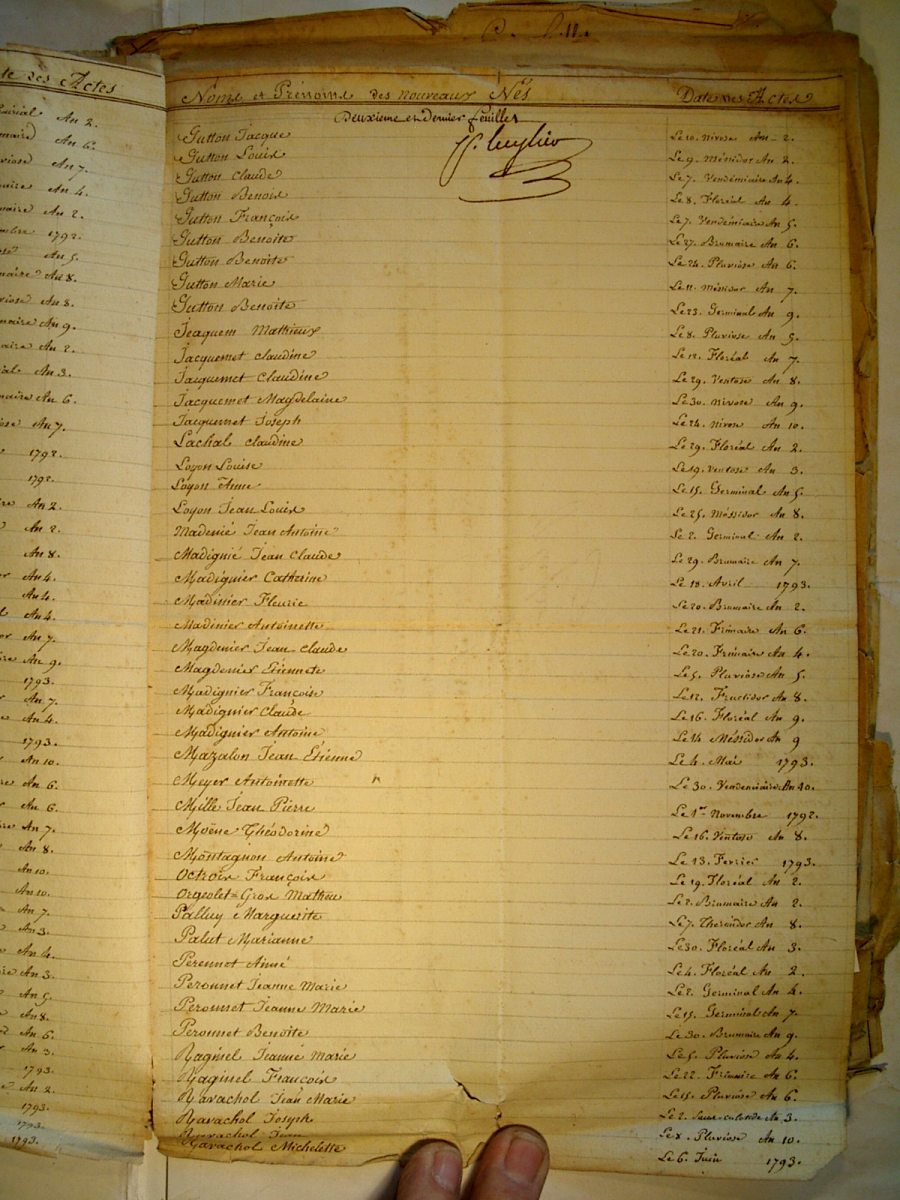 te des Actes
An 2.
An 6.
An 7.
An 4.
An 2.
1792.
An 5.
An 8.
An 8.
An 9.
An 2.
An 3.
An 6.
An 7.
1792.
1792.
An 2.
An 2.
An 8.
An 4.
An 4.
An 4.
An 7.
An 9.
1793.
An 7.
An 4.
1793.
An 10.
An 6.
An 6.
An 7.
An 8.
An 10.
An 10.
An 7.
An 3.
An 4.
An 3.
An 5.
An 8.
An 6.
An 3.
1793.
An 2.
1793.
1793.
1793.
Noms et Prénoms des nouveaux Nés Date des Actes
Deuxieme et dernier feuillet
Gutton Jacque Le 10. nivose An 2.
Gutton Louis Le 9. Messidor An 2.
Gutton Claude Le 7. Vendémiaire An 4.
Gutton Benois Le 8. Floréal An 4.
Gutton François Le 7. Vendémiaire An 5.
Gutton Benoite Le 27. Brumaire An 6.
Gutton Benoite Le 24. Pluviose An 6.
Gutton Marie Le 11. Messidor An 7.
Gutton Benoite Le 23. Germinal An 9.
Jeaquem Mathieux Le 8. Pluviose An 5.
Jacquemet Claudine Le 12. Floréal An 7.
Jacquemet Claudine Le 29. Ventose An 8.
Jacquemet Magdelaine Le 30. nivose An 9.
Jacquemet Joseph Le 24. nivose An 10.
Lachal Claudine Le 29. Floréal An 2.
Loyon Louise Le 19. ventose An 3.
Loyon Anne Le 15. Germinal An 5.
Loyon Jean Louis Le 25. Messidor An 8.
Madenié Jean Antoine Le 2. Germinal An 2.
Madignié Jean Claude Le 29. Brumaire An 7.
Madignier Catherine Le 18. Avril 1793.
Madinier Fleurie Le 20. Brumaire An 2.
Madinier Antoinette Le 21. Frimaire An 6.
Magdenier Jean Claude Le 20. Frimaire An 4.
Magdenier Etiennete Le 5. Pluviose An 5.
Madignier Francoise Le 12. Fructidor An 8.
Madignier Claude Le 16. Floréal An 9.
Madignier Antoine Le 14 Messidor An 9
Mazalon Jean Etienne Le 4. Mai 1793.
Meyer Antoinette Le 30. Vendemiaire An 10.
Mille Jean Pierre Le 1er Novembre 1792.
Moëne Théodorine Le 16. Ventose An 8.
Montagnon Antoine Le 13. Fevrier 1793.
Octroix François Le 19. Floréal An 2.
Orgeolet=Gros Mathieu Le 2. Brumaire An 2.
Palluy Marguerite Le 7. An 8.
Palut Marianne Le 30. Floréal An 3.
Perennot Aimé Le 4. Floréal An 2.
Peronnet Jeanne Marie Le 2. Germinal An 4.
Peronnet Jeanne Marie Le 15. Germinal An 7.
Peronnet Benoite Le 30. Brumaire An 9.
Raginel Jeanne Marie Le 5. Pluviose An 4.
Raginel Francois Le 22. Frimaire An 6.
Ravachol Jean Marie Le 15. Pluviose An 6.
Ravachol Joseph Le 2. An 3.
Ravachol Jean Le 8. Pluviose An 10.
Ravachol Michelette Le 6. Juin 1793.